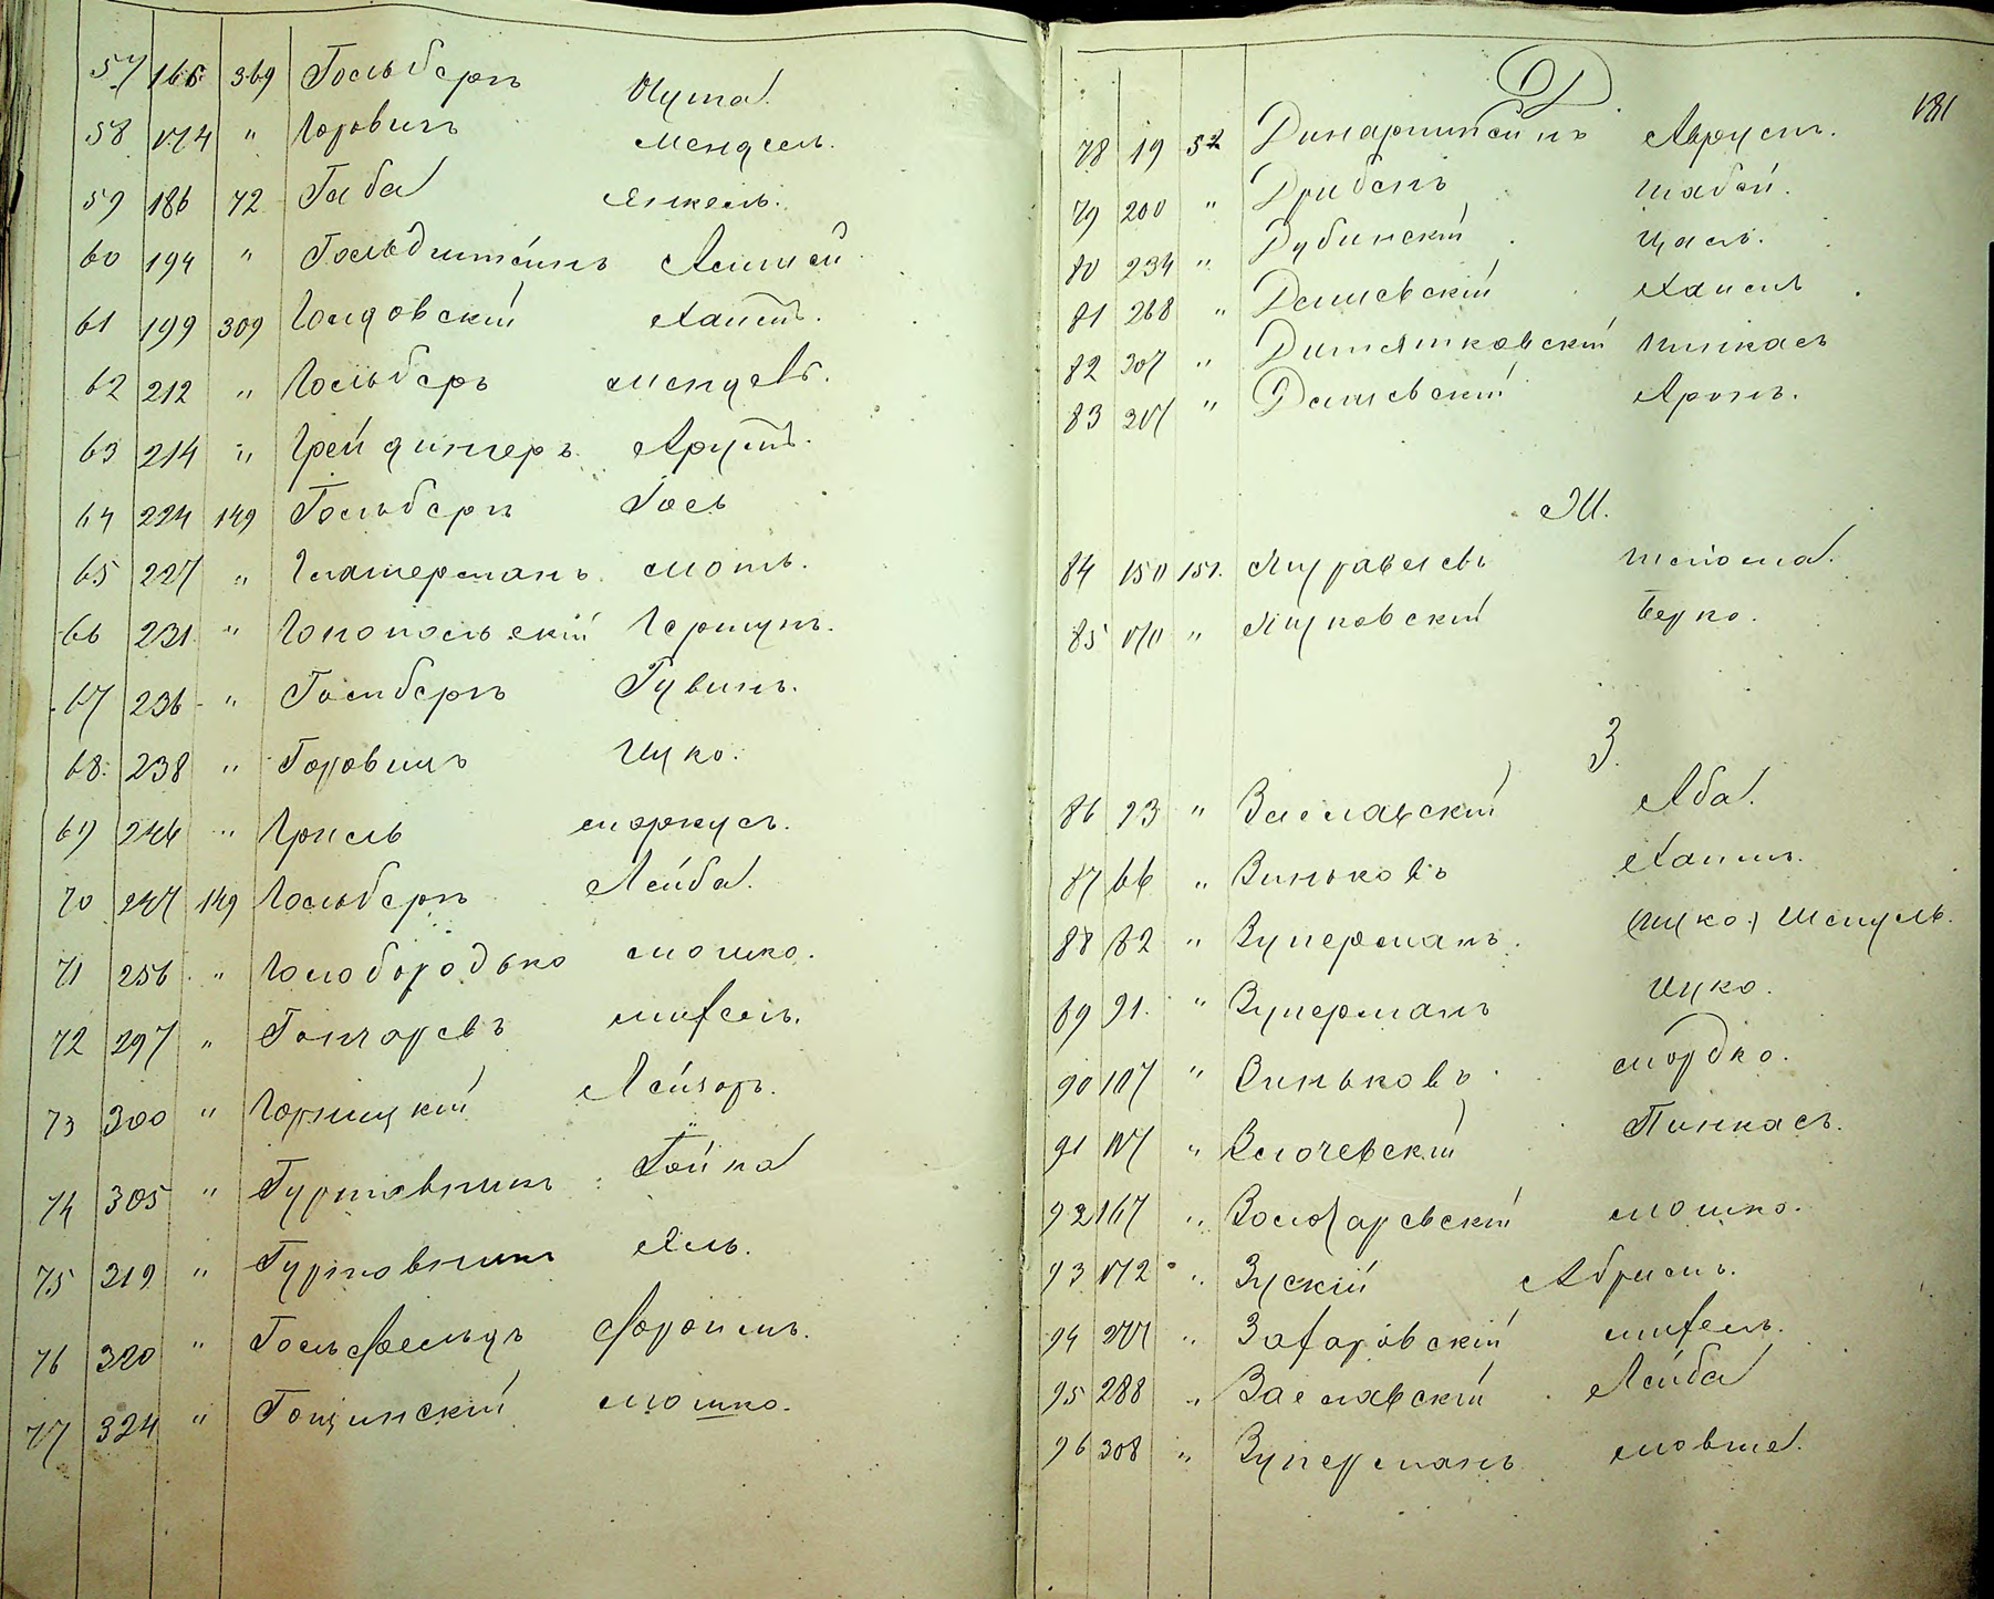 57 166 369 Гольбергъ Шута.
58 174 " Горовиць Мендель.
59 186 72 Габа Янкель.
60 194 " Гольдштейнъ
61 199 309 Голдовскій Хаимъ.
62 212 " Гольберъ Мендель.
63 214 " Грейдингеръ Арумъ.
64 224 149 Гольбергъ Іось
65 227 " Клятерманъ Моть.
66 231 " Гонопольскій Гершунъ.
67 236 " Голмбергъ Рувинъ.
68 238 " Горовиць Ицко.
69 244 " Грисль Маркусъ.
70 247 149 Гольбергъ Лейба.
71 256 " Голобородько Мошко.
72 297 " Гончаревъ Михель.
73 300 " Горницкій Лейзоръ.
74 305 " Гуртовникъ Гойна
75 319 " Гуртовникъ Хиль.
76 320 " Гольфельдъ Фроимъ.
77 324 " Гощинскій Мошко.
181
Д
78 19 52 Динарштейнъ Аврумъ.
79 200 " Дрибенъ Шабей.
80 234 " Дубинскій Цаль.
81 268 " Дашевскій Хаимъ
82 307 " Дитятковскій Пинкасъ
83 317 " Дашевскій Аронъ.
Ж.
84 150 151. Журавлевъ Шлёма.
85 170 " Жуковскій Берко.
З.
86 23 " Заславскій Аба.
87 66 " Зиньковъ Хаимъ.
88 82 " Зуперманъ (Ицко) Шмуль.
89 91. " Зуперманъ Ицко.
90 107 " Зиньковъ Мордко.
91 117 " Злочевскій Пинкасъ.
92 167 " Золотаревскій Мошко.
93 172 " Зускій Абрамъ.
94 277 " Захаровскій Михель.
95 288 " Заславскій Лейба
96 308 " Зуперманъ Мовша.